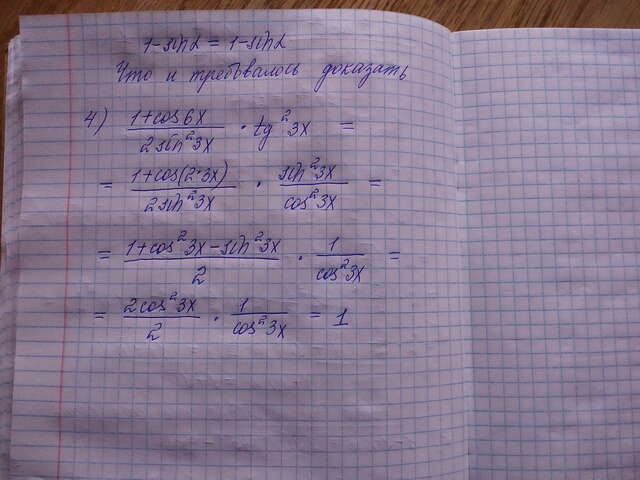 1-sin2 = 1-sin2
Что и требовалось доказать
4) (1+cos6x)/(2sin²3x) · tg²3x =
= (1+cos(2·3x))/(2sin²3x) · sin²3x/cos²3x =
= (1+cos²3x-sin²3x)/2 · 1/cos²3x =
= 2cos²3x/2 · 1/cos²3x = 1